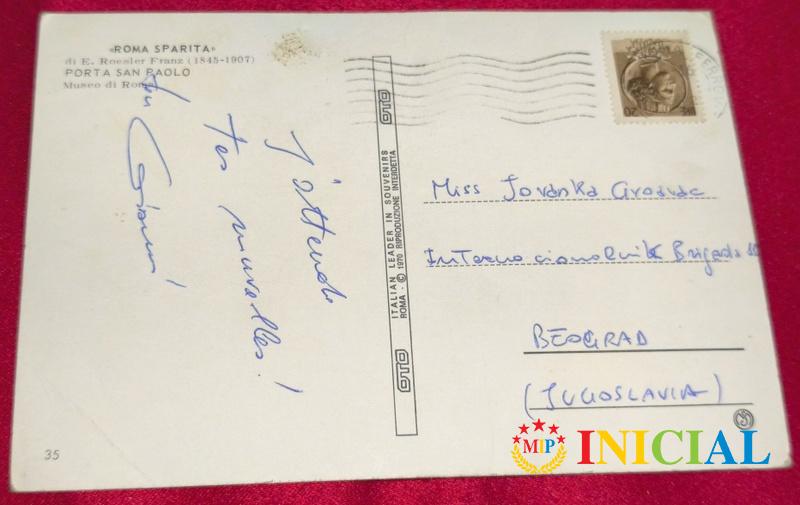 «ROMA SPARITA»
di E. Roesler Franz (1845-1907)
PORTA SAN PAOLO
Museo di Roma
J'attends
tes nouvelles!
OTO
ITALIAN LEADER IN SOUVENIRS
ROMA - © 1970 RIPRODUZIONE INTERDETTA
OTO
Miss Jovanka
Internacionalnik Brigada
BEOGRAD
(JUGOSLAVIA)
35
MIP INICIAL